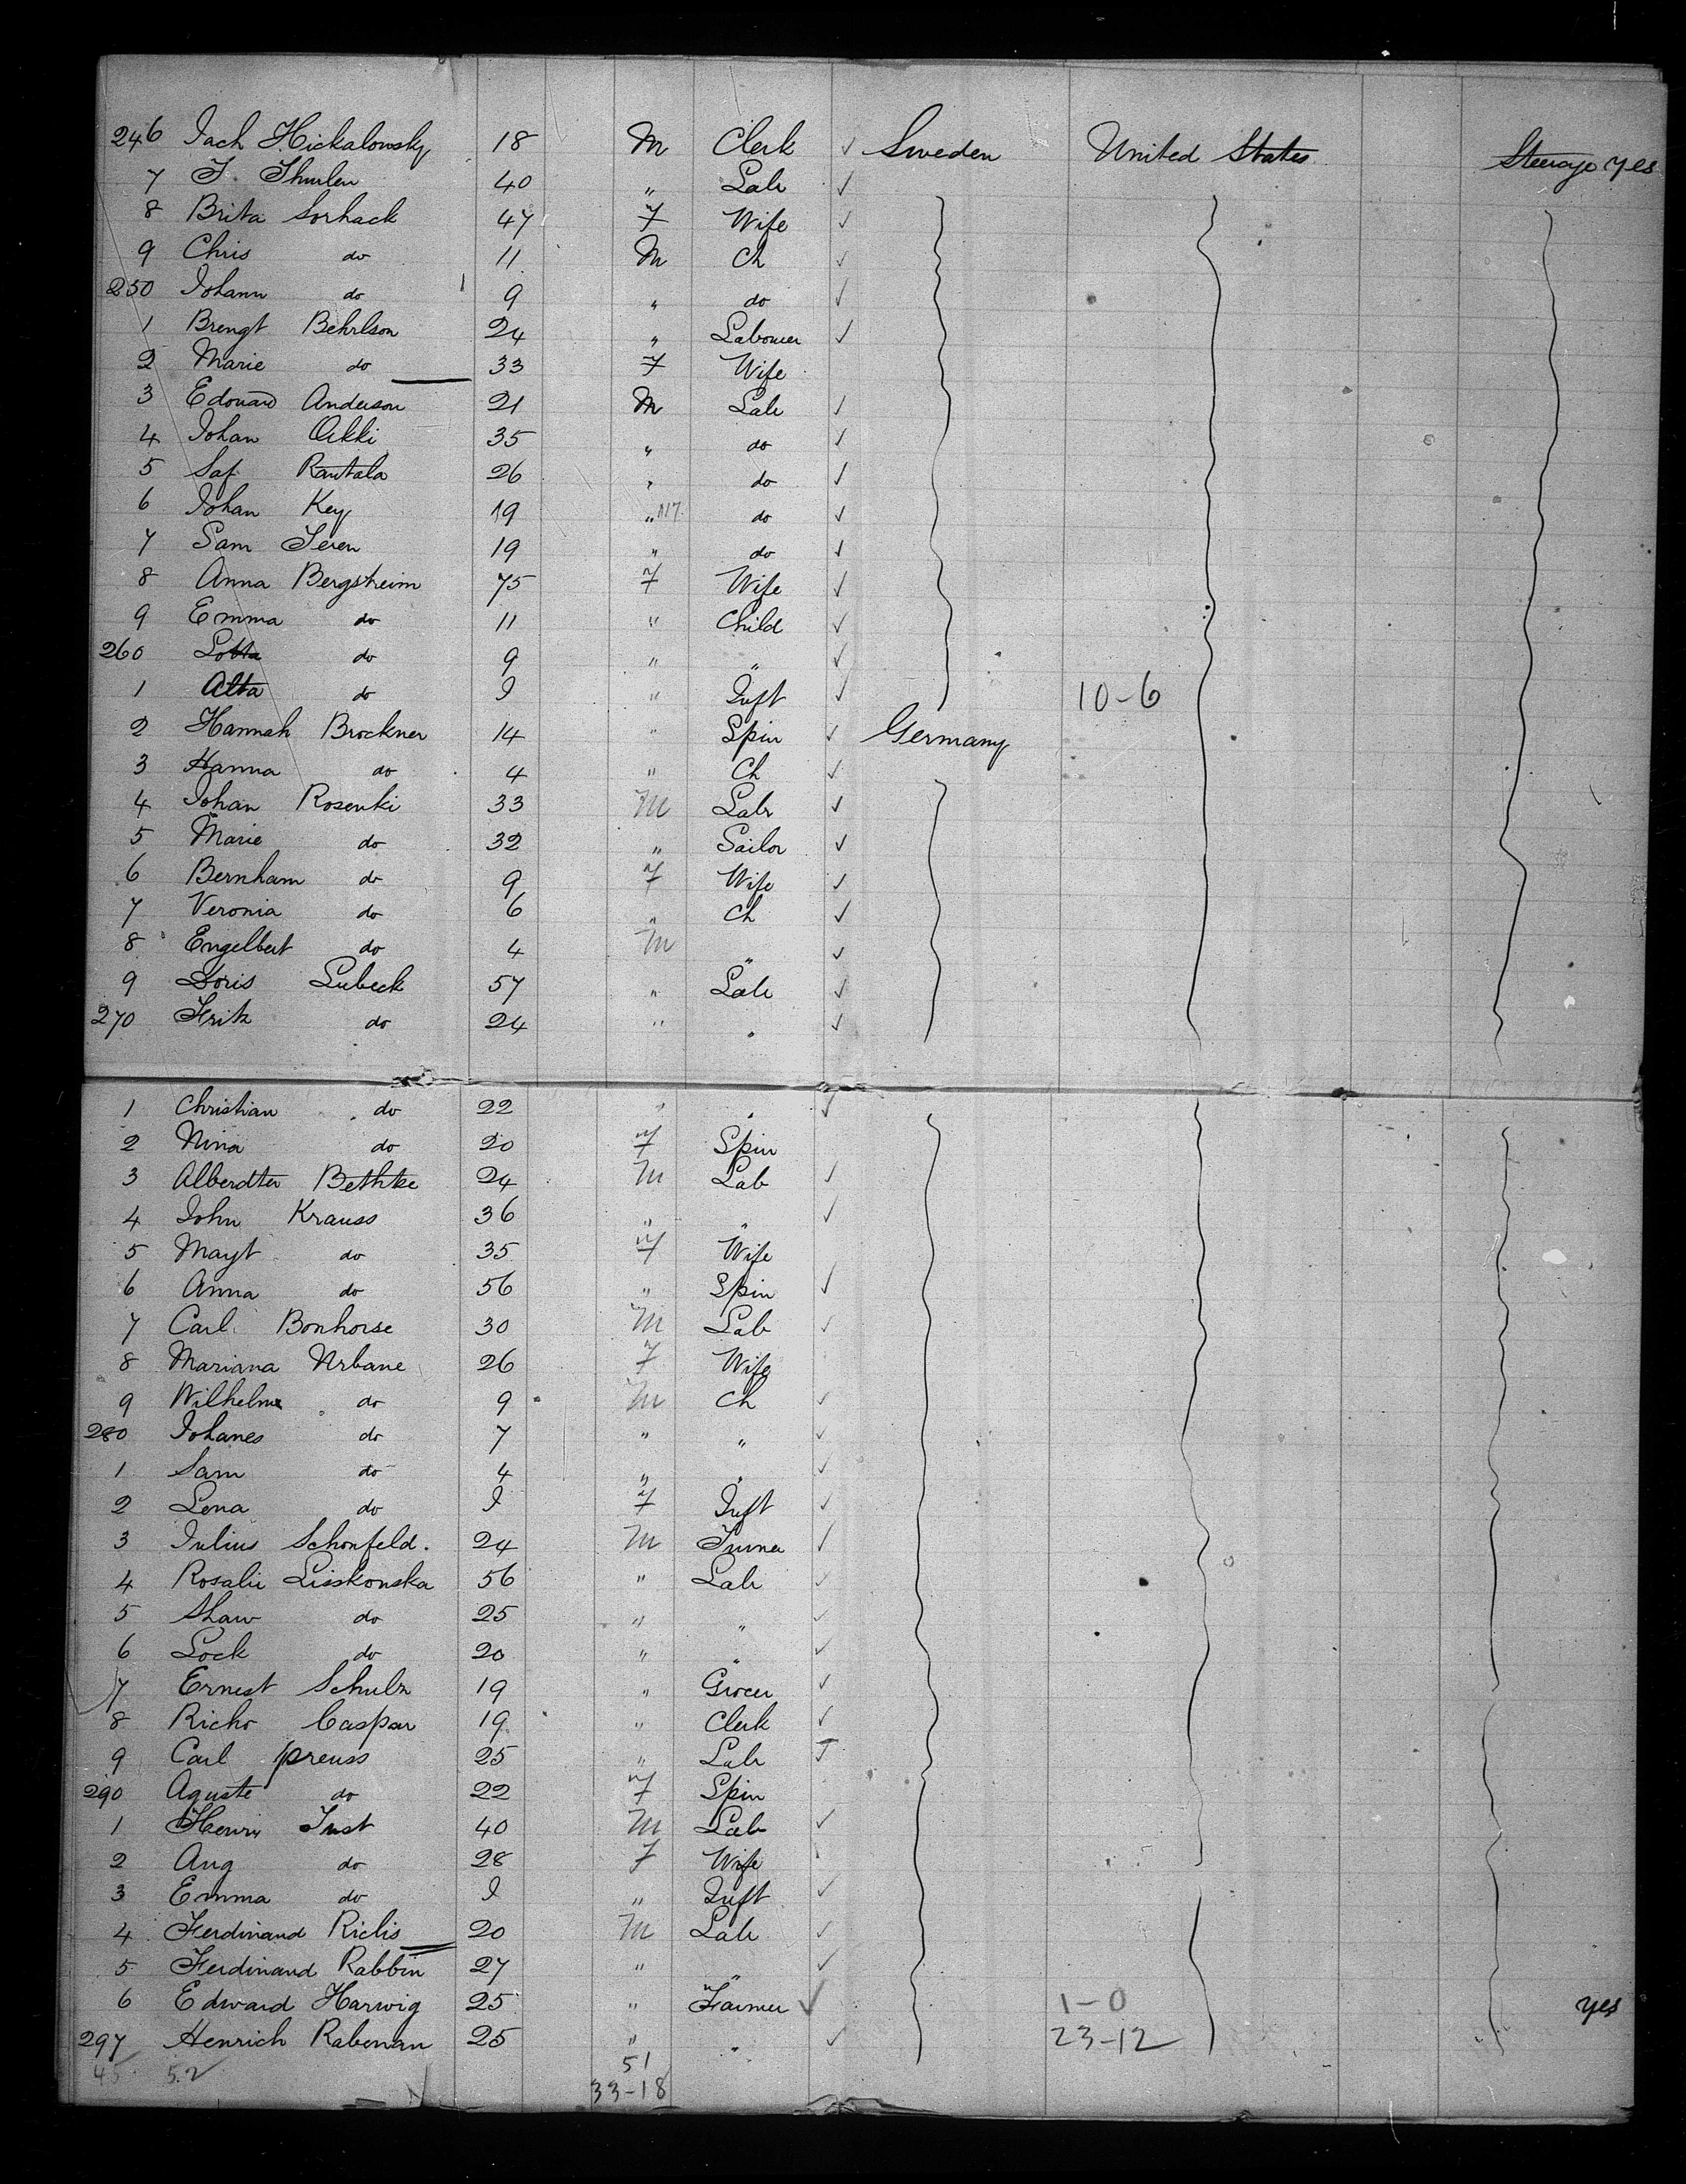 246 Jach Hickalowsky 18 M Clerk ✓ Sweden United States Steerage yes
7 F. Thurlen 40 " Labr ✓
8 Brita Sorhack 47 F Wife ✓
9 Chris do 11 M Ch ✓
250 Johann do 9 " do ✓
1 Brengt Behrlson 24 " Labourer ✓
2 Marie do 33 F Wife
3 Edouard Anderson 21 M Labr ✓
4 Johan Oikki 35 " do ✓
5 Saf Rautala 26 " do ✓
6 Johan Key 19 " do ✓
7 Sam Seren 19 " do ✓
8 Anna Bergstreim 75 F Wife ✓
9 Emma do 11 " Child ✓
260 Lotta do 9 " " ✓
1 Alta do I " Inft ✓ 10-6
2 Hannah Brockner 14 " Spin ✓ Germany
3 Hanna do 4 " Ch ✓
4 Johan Rosenki 33 M Labr ✓
5 Marie do 32 " Sailor ✓
6 Bernham do 9 F Wife ✓
7 Veronia do 6 " Ch ✓
8 Engelbert do 4 M " ✓
9 Doris Lubeck 57 " Labr ✓
270 Fritz do 24 " " ✓
1 Christian do 22 " " ✓
2 Nina do 20 F Spin
3 Alberdter Bethke 24 M Lab ✓
4 John Krauss 36 " " ✓
5 Mayt do 35 F Wife
6 Anna do 56 " Spin ✓
7 Carl Bonhorse 30 M Lab ✓
8 Mariana Urbane 26 F Wife
9 Wilhelm do 9 M Ch ✓
280 Johanes do 7 " " ✓
1 Sam do 4 " " ✓
2 Lena do I F Inft ✓
3 Julius Schonfeld. 24 M ✓
4 Rosalie Lisskonska 56 " Labr ✓
5 Shaw do 25 " " ✓
6 Lock do 20 " " ✓
7 Ernest Schulz 19 " Grocer ✓
8 Richo Caspar 19 " Clerk ✓
9 Carl preuss 25 " Labr
290 Aguste do 22 F Spin
1 Henri Just 40 M Lab ✓
2 Aug do 28 F Wife
3 Emma do I " Inft ✓
4 Ferdinand Richs 20 M Labr ✓
5 Ferdinand Rabbin 27 " " ✓
6 Edward Harwig 25 " Farmer ✓ 1-0 yes
297 Henrich Rabenan 25 " " ✓ 23-12
45 52 51
33-18